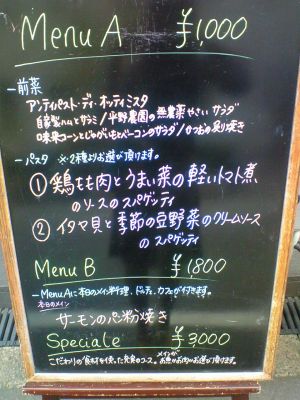 Menu A ¥1,000
－前菜
アンティパスト・ディ・オッティミスタ
自家製ハムとサラミ/平野農園の無農薬やさいサラダ
味来コーンとじゃがいもとベーコンのサラダ/かつおの炙り焼き
－パスタ ※2種よりお選び頂けます。
① 鶏もも肉とうまい菜の軽いトマト煮
のソースのスパゲッティ
② イタヤ貝と季節の豆野菜のクリームソース
のスパゲッティ
Menu B ¥1800
－Menu Aに本日のメイン料理、ドルチェ、カフェが付きます。
本日のメイン
サーモンのパン粉焼き
Speciale ¥3,000
こだわりの食材を使った充実のコース。メインがお魚かお肉かお選び頂けます。